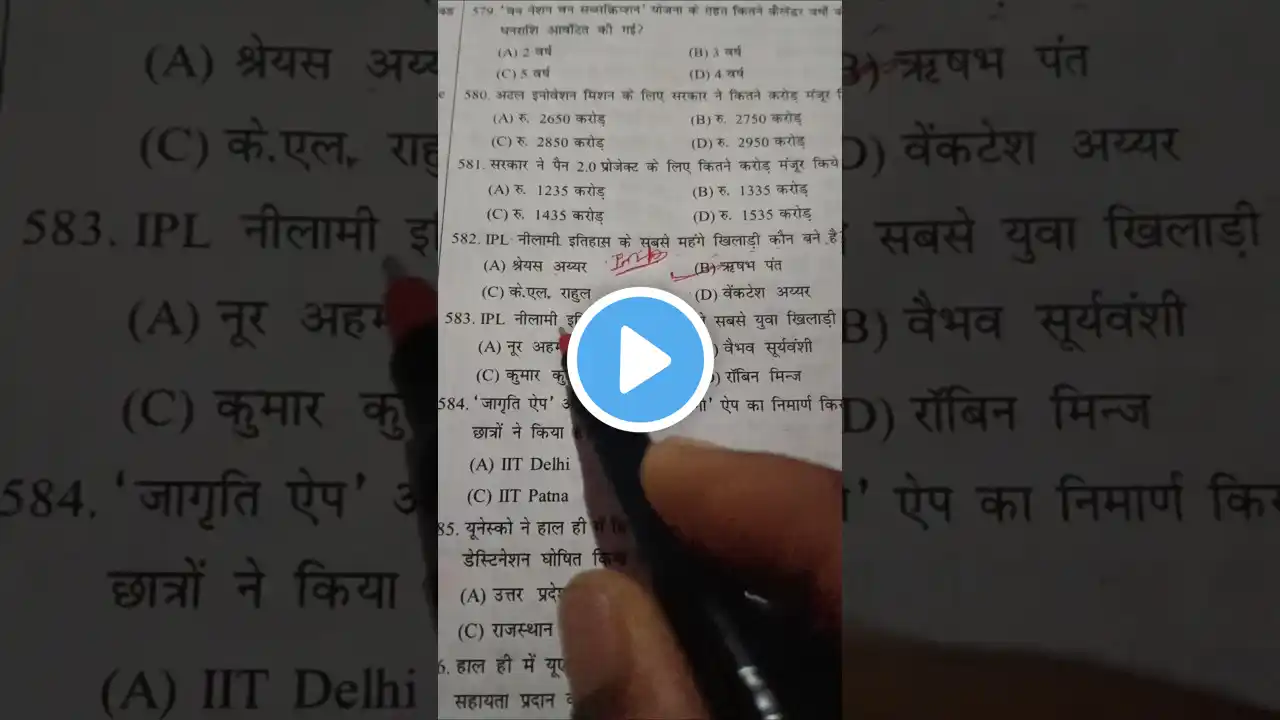 579 'वन नेशन वन सब्सक्रिप्शन' योजना के तहत कितने कैलेंडर वर्षों
धनराशि आवंटित की गई?
(A) 2 वर्ष (B) 3 वर्ष
(C) 5 वर्ष (D) 4 वर्ष
580. अटल इनोवेशन मिशन के लिए सरकार ने कितने करोड़ मंजूर
(A) रु. 2650 करोड़ (B) रु. 2750 करोड़
(C) रु. 2850 करोड़ (D) रु. 2950 करोड़
581. सरकार ने पैन 2.0 प्रोजेक्ट के लिए कितने करोड़ मंजूर किये
(A) रु. 1235 करोड़ (B) रु. 1335 करोड़
(C) रु. 1435 करोड़ (D) रु. 1535 करोड़
582. IPL नीलामी इतिहास के सबसे महंगे खिलाड़ी कौन बने है
(A) श्रेयस अय्यर (B) ऋषभ पंत
(C) के.एल. राहुल (D) वेंकटेश अय्यर
583. IPL नीलामी सबसे युवा खिलाड़ी
(A) नूर वैभव सूर्यवंशी
(C) कुमार रॉबिन मिन्ज
584. 'जागृति ऐप' ऐप का निमार्ण
छात्रों ने किया
(A) IIT Delhi
(C) IIT Patna
85. यूनेस्को ने हाल ही में
डेस्टिनेशन घोषित
(A) उत्तर
(C) राजस्थान
6. हाल ही में
सहायता प्रदान